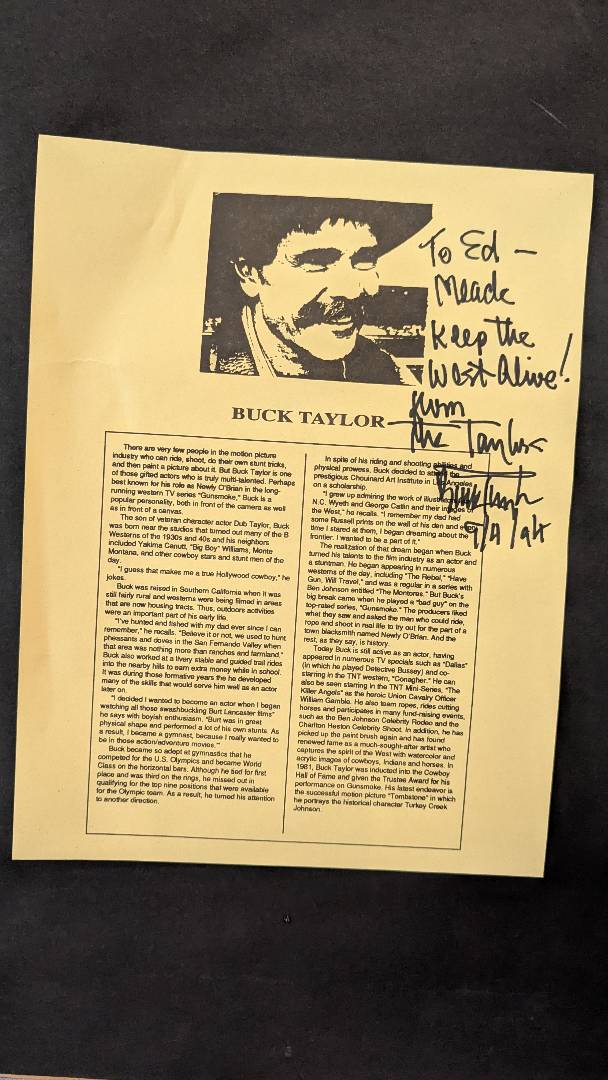 To Ed –
Meade
Keep the
West Alive!
from
The Taylors
BUCK TAYLOR
9/4/94
There are very few people in the motion picture
industry who can ride, shoot, do their own stunt tricks,
and then paint a picture about it. But Buck Taylor is one
of those gifted actors who is truly multi-talented. Perhaps
best known for his role as Newly O'Brian in the long-
running western TV series "Gunsmoke," Buck is a
popular personality, both in front of the camera as well
as in front of a canvas.
The son of veteran character actor Dub Taylor, Buck
was born near the studios that turned out many of the B
Westerns of the 1930s and 40s and his neighbors
included Yakima Canutt, "Big Boy" Williams, Monte
Montana, and other cowboy stars and stunt men of the
day.
"I guess that makes me a true Hollywood cowboy," he
jokes.
Buck was raised in Southern California when it was
still fairly rural and westerns were being filmed in areas
that are now housing tracts. Thus, outdoors activities
were an important part of his early life.
"I've hunted and fished with my dad ever since I can
remember," he recalls. "Believe it or not, we used to hunt
pheasants and doves in the San Fernando Valley when
that area was nothing more than ranches and farmland."
Buck also worked at a livery stable and guided trail rides
into the nearby hills to earn extra money while in school.
It was during those formative years the he developed
many of the skills that would serve him well as an actor
later on.
"I decided I wanted to become an actor when I began
watching all those swashbuckling Burt Lancaster films"
he says with boyish enthusiasm. "Burt was in great
physical shape and performed a lot of his own stunts. As
a result, I became a gymnast, because I really wanted to
be in those action/adventure movies."
Buck became so adept at gymnastics that he
competed for the U.S. Olympics and became World
Class on the horizontal bars. Although he tied for first
place and was third on the rings, he missed out in
qualifying for the top nine positions that were available
for the Olympic team. As a result, he turned his attention
to another direction.
In spite of his riding and shooting abilities and
physical prowess, Buck decided to attend the
prestigious Chouinard Art Institute in Los Angeles
on a scholarship.
"I grew up admiring the work of
N.C. Wyeth and George Catlin and their images of
the West," he recalls. "I remember my dad had
some Russell prints on the wall of his den and every
time I stared at them, I began dreaming about the
frontier. I wanted to be a part of it."
The realization of that dream began when Buck
turned his talents to the film industry as an actor and
a stuntman. He began appearing in numerous
westerns of the day, including "The Rebel," "Have
Gun, Will Travel," and was a regular in a series with
Ben Johnson entitled "The Monrores." But Buck's
big break came when he played a "bad guy" on the
top-rated series, "Gunsmoke." The producers liked
what they saw and asked the man who could ride,
rope and shoot in real life to try out for the part of a
town blacksmith named Newly O'Brian. And the
rest, as they say, is history.
Today Buck is still active as an actor, having
appeared in numerous TV specials such as "Dallas"
(in which he played Detective Bussey) and co-
starring in the TNT western, "Conagher." He can
also be seen starring in the TNT Mini-Series, "The
Killer Angels" as the heroic Union Cavalry Officer
William Gamble. He also team ropes, rides cutting
horses and participates in many fund-raising events,
such as the Ben Johnson Celebrity Rodeo and the
Charlton Heston Celebrity Shoot. In addition, he has
picked up the paint brush again and has found
renewed fame as a much-sought-after artist who
captures the spirit of the West with watercolor and
acrylic images of cowboys, Indians and horses. In
1981, Buck Taylor was inducted into the Cowboy
Hall of Fame and given the Trustee Award for his
performance on Gunsmoke. His latest endeavor is
the successful motion picture "Tombstone" in which
he portrays the historical character Turkey Creek
Johnson.